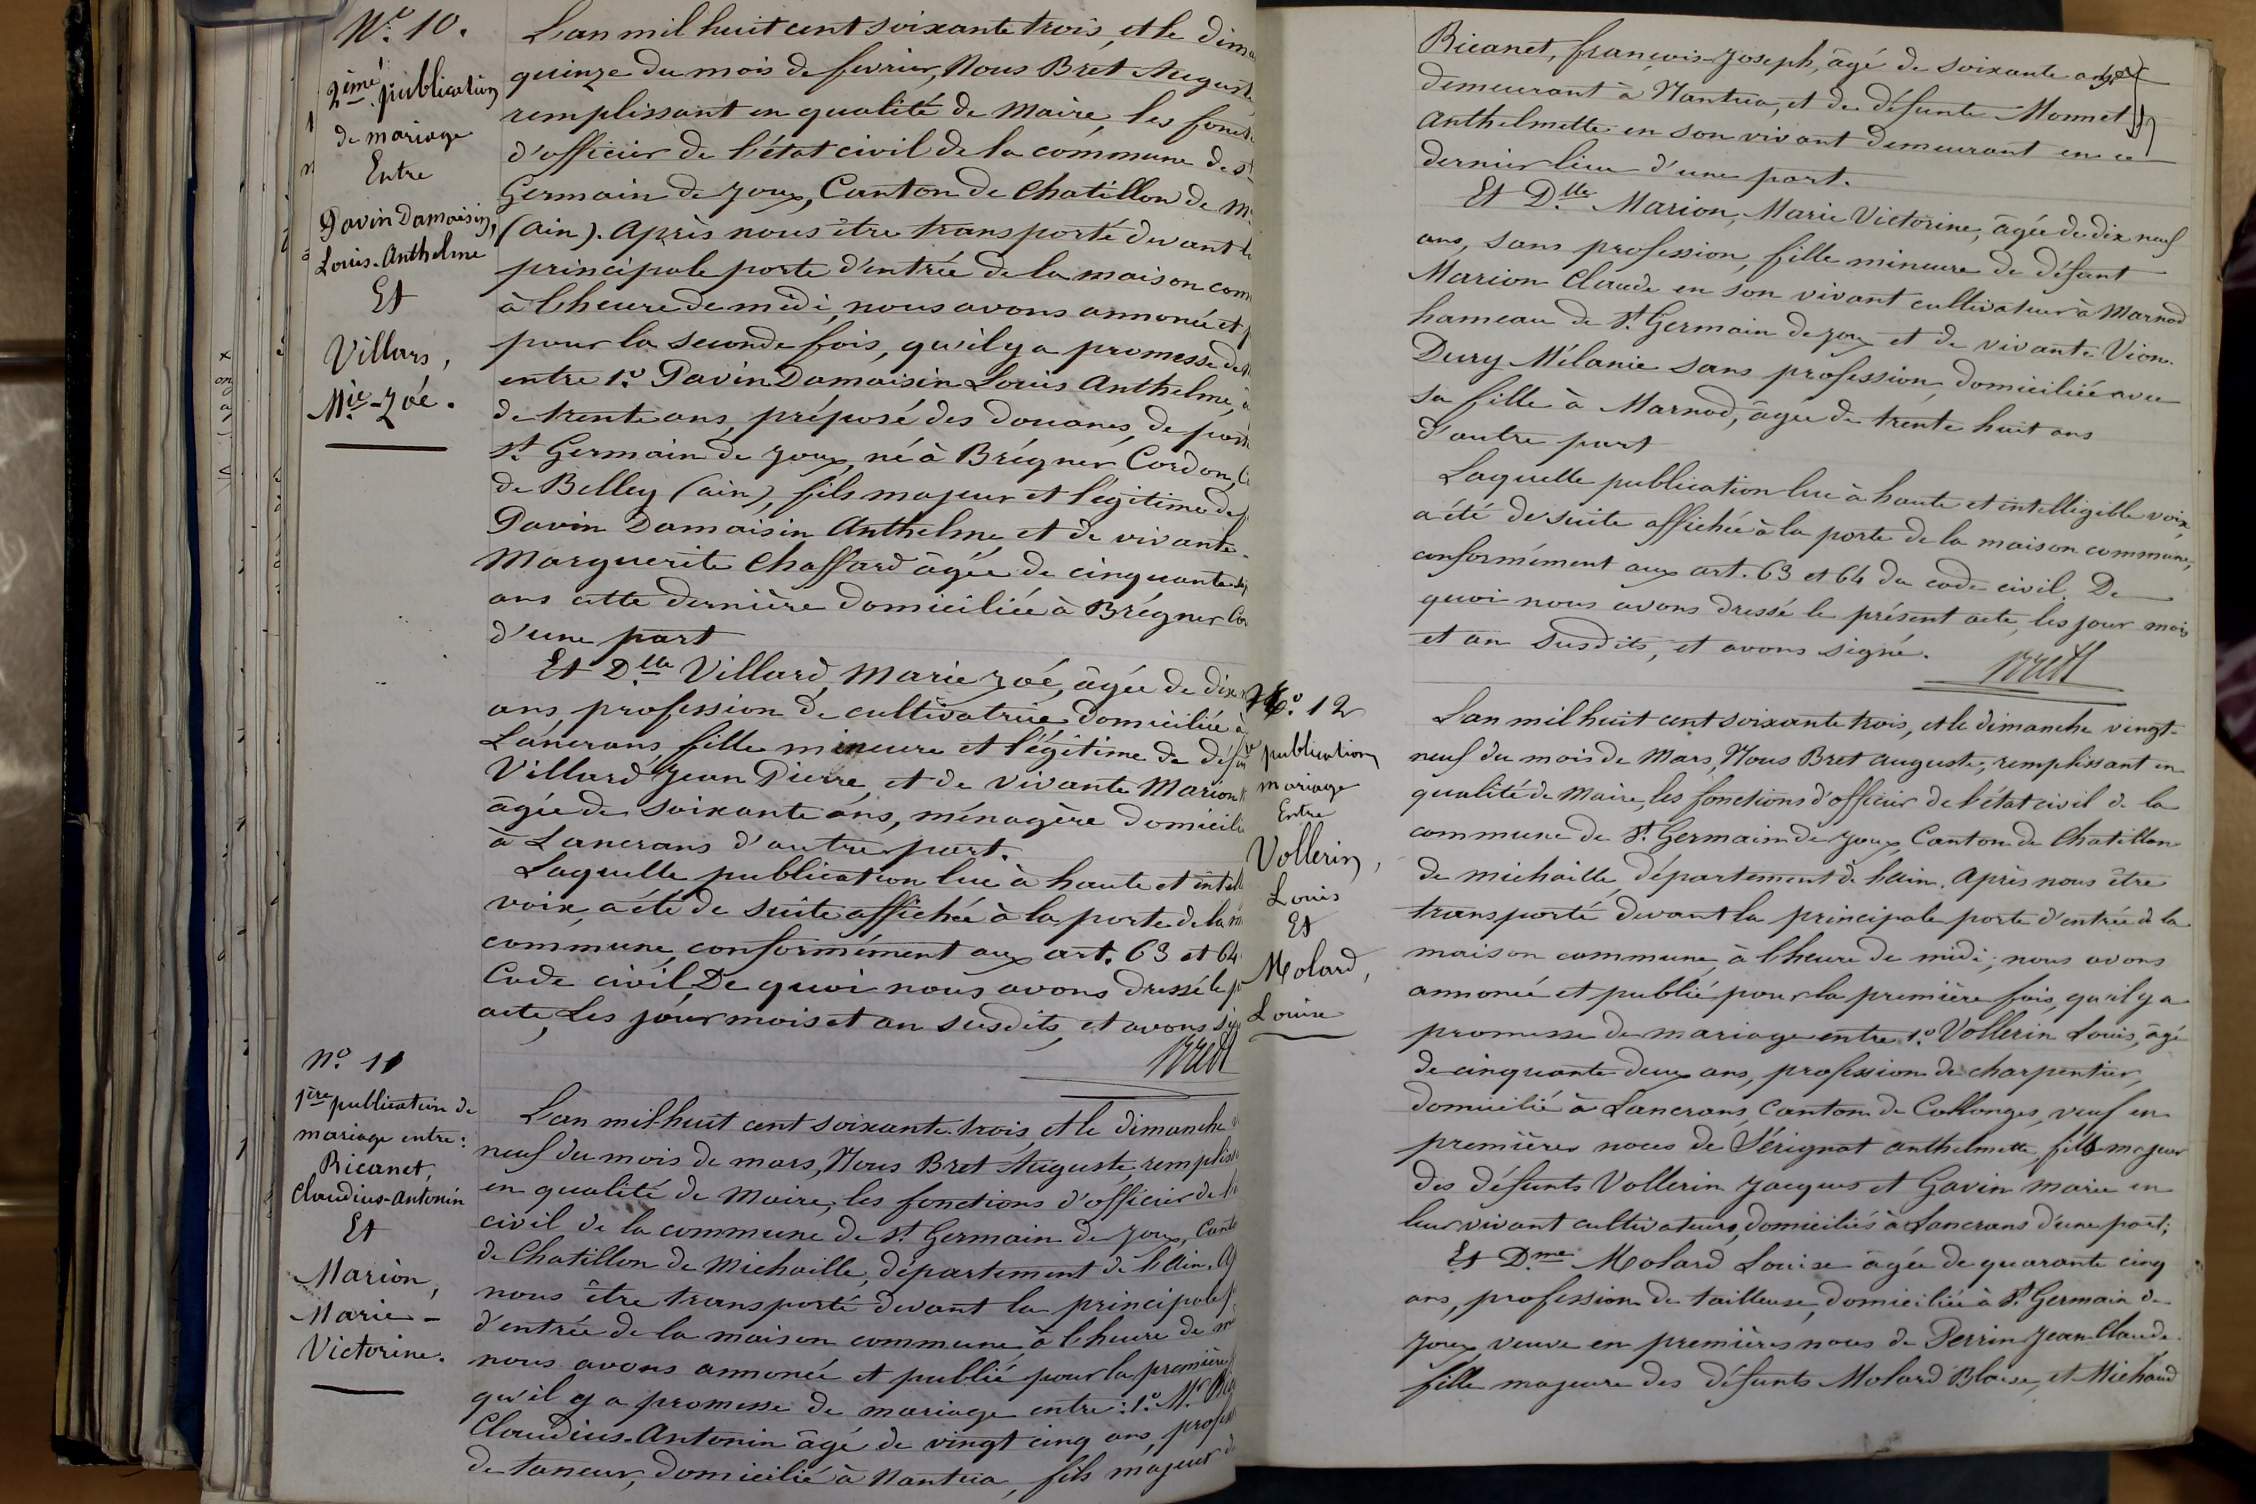 N.° 10.
2ème publication
de mariage
Entre
Pavin Damaisin,
Louis-Anthelme
Et
Villars,
Mie-Zoé.
L'an mil huit cent soixante trois, et le dima
quinze du mois de fevrier, Nous Bret Auguste
remplissant en qualité de Maire, les fonct
d'officier de l'état civil de la commune de st
Germain de Joux, Canton de Chatillon de M
(ain). Après nous être transporté devant la
principale porte d'entrée de la maison com
à l'heure de midi, nous avons annoncé et p
pour la seconde fois, qu'il y a promesse de
entre 1.° Pavin Damaisin Louis Anthelme, a
de trente ans, préposé des douanes, de post
st Germain de Joux, né à Brégner Cordon, C
de Belley (ain), fils majeur et légitime de
Pavin Damaisin Anthelme et de vivante
Marguerite Chaffard âgée de cinquante
ans cette dernière domiciliée à Brégner Cor
d'une part
Et D.lle Villard, Marie Zoé, âgée de dix
ans, profession de cultivatrice domiciliée à
Lancrans fille mineure et légitime de défun
Villard Jean Pierre, et de vivante Marion
âgée de soixante ans, ménagère domicili
à Lancrans d'autre part.
Laquelle publication lue à haute et intell
voix, a été de suite affichée à la porte de la m
commune, conformément aux art. 63 et 64
Code civil, De quoi nous avons dressé le p
acte, Les jour mois et an susdits, et avons si
Bret
N.° 11
1ère publication de
mariage entre:
Ricanet,
Claudius-Antonin
Et
Marion,
Marie-
Victorine.
L'an mil huit cent soixante trois, et le dimanche
neuf du mois de mars, Nous Bret Auguste, rempliss
en qualité de Maire, les fonctions d'officier de l'é
civil de la commune de st Germain de Joux, Canto
de Chatillon de Michaille, département de l'Ain. A
nous être transporté devant la principale p
d'entrée de la maison commune à l'heure de m
nous avons annoncé et publié pour la première
qu'il y a promesse de mariage entre: 1.° Mr Rica
Claudius-Antonin âgé de vingt cinq ans, profess
de taneur, domicilié à Nantua, fils majeur de
Ricanet, françois-Joseph, âgé de soixante ans
demeurant à Nantua, et de défunte Monnet
Anthelmette en son vivant demeurant en ce
dernier lieu d'une part.
Et D.lle Marion, Marie Victorine, âgée de dix neuf
ans, sans profession, fille mineure de défunt
Marion Claude en son vivant cultivateur à Marnod
hameau de st Germain de Joux et de vivante Vion-
Dury Mélanie sans profession, domiciliée avec
sa fille à Marnod, âgée de trente huit ans
d'autre part
Laquelle publication lue à haute et intelligible voix,
a été de suite affichée à la porte de la maison commune,
conformément aux art. 63 et 64 du code civil. De
quoi nous avons dressé le présent acte, les jour mois
et an susdits, et avons signé.
Bret
N.° 12
publication
mariage
Entre
Vollerin,
Louis
Et
Molard,
Louise
L'an mil huit cent soixante trois, et le dimanche vingt-
neuf du mois de Mars, Nous Bret Auguste, remplissant en
qualité de Maire, les fonctions d'officier de l'état civil de la
commune de st Germain de Joux, Canton de Chatillon
de Michaille, département de l'Ain. Après nous être
transporté devant la principale porte d'entrée de la
maison commune, à l'heure de midi, nous avons
annoncé et publié pour la première fois, qu'il y a
promesse de mariage entre 1.° Vollerin Louis, âgé
de cinquante deux ans, profession de charpentier,
domicilié à Lancrans, Canton de Collonges, veuf en
premières noces de Sérignat Anthelmette, fils majeur
des défunts Vollerin Jacques et Gavin Marie en
leur vivant cultivateurs, domiciliés à Lancrans d'une part;
Et D.me Molard Louise âgée de quarante cinq
ans, profession de tailleuse, domiciliée à St Germain de
Joux, veuve en premières noces de Perrin Jean Claude
fille majeure des défunts Molard Blaise, et Michaud